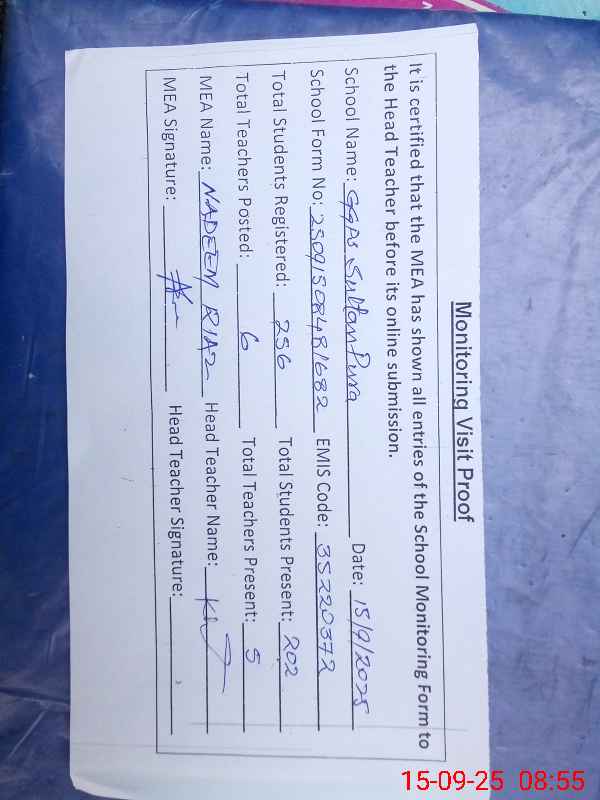 Monitoring Visit Proof
It is certified that the MEA has shown all entries of the School Monitoring Form to
the Head Teacher before its online submission.
School Name: GGPS Sultan Pura Date: 15/9/2025
School Form No: 25091508481682 EMIS Code: 35220372
Total Students Registered: 256 Total Students Present: 202
Total Teachers Posted: 6 Total Teachers Present: 5
MEA Name: NADEEM RIAZ Head Teacher Name:
MEA Signature: Head Teacher Signature:
15-09-25 08:55